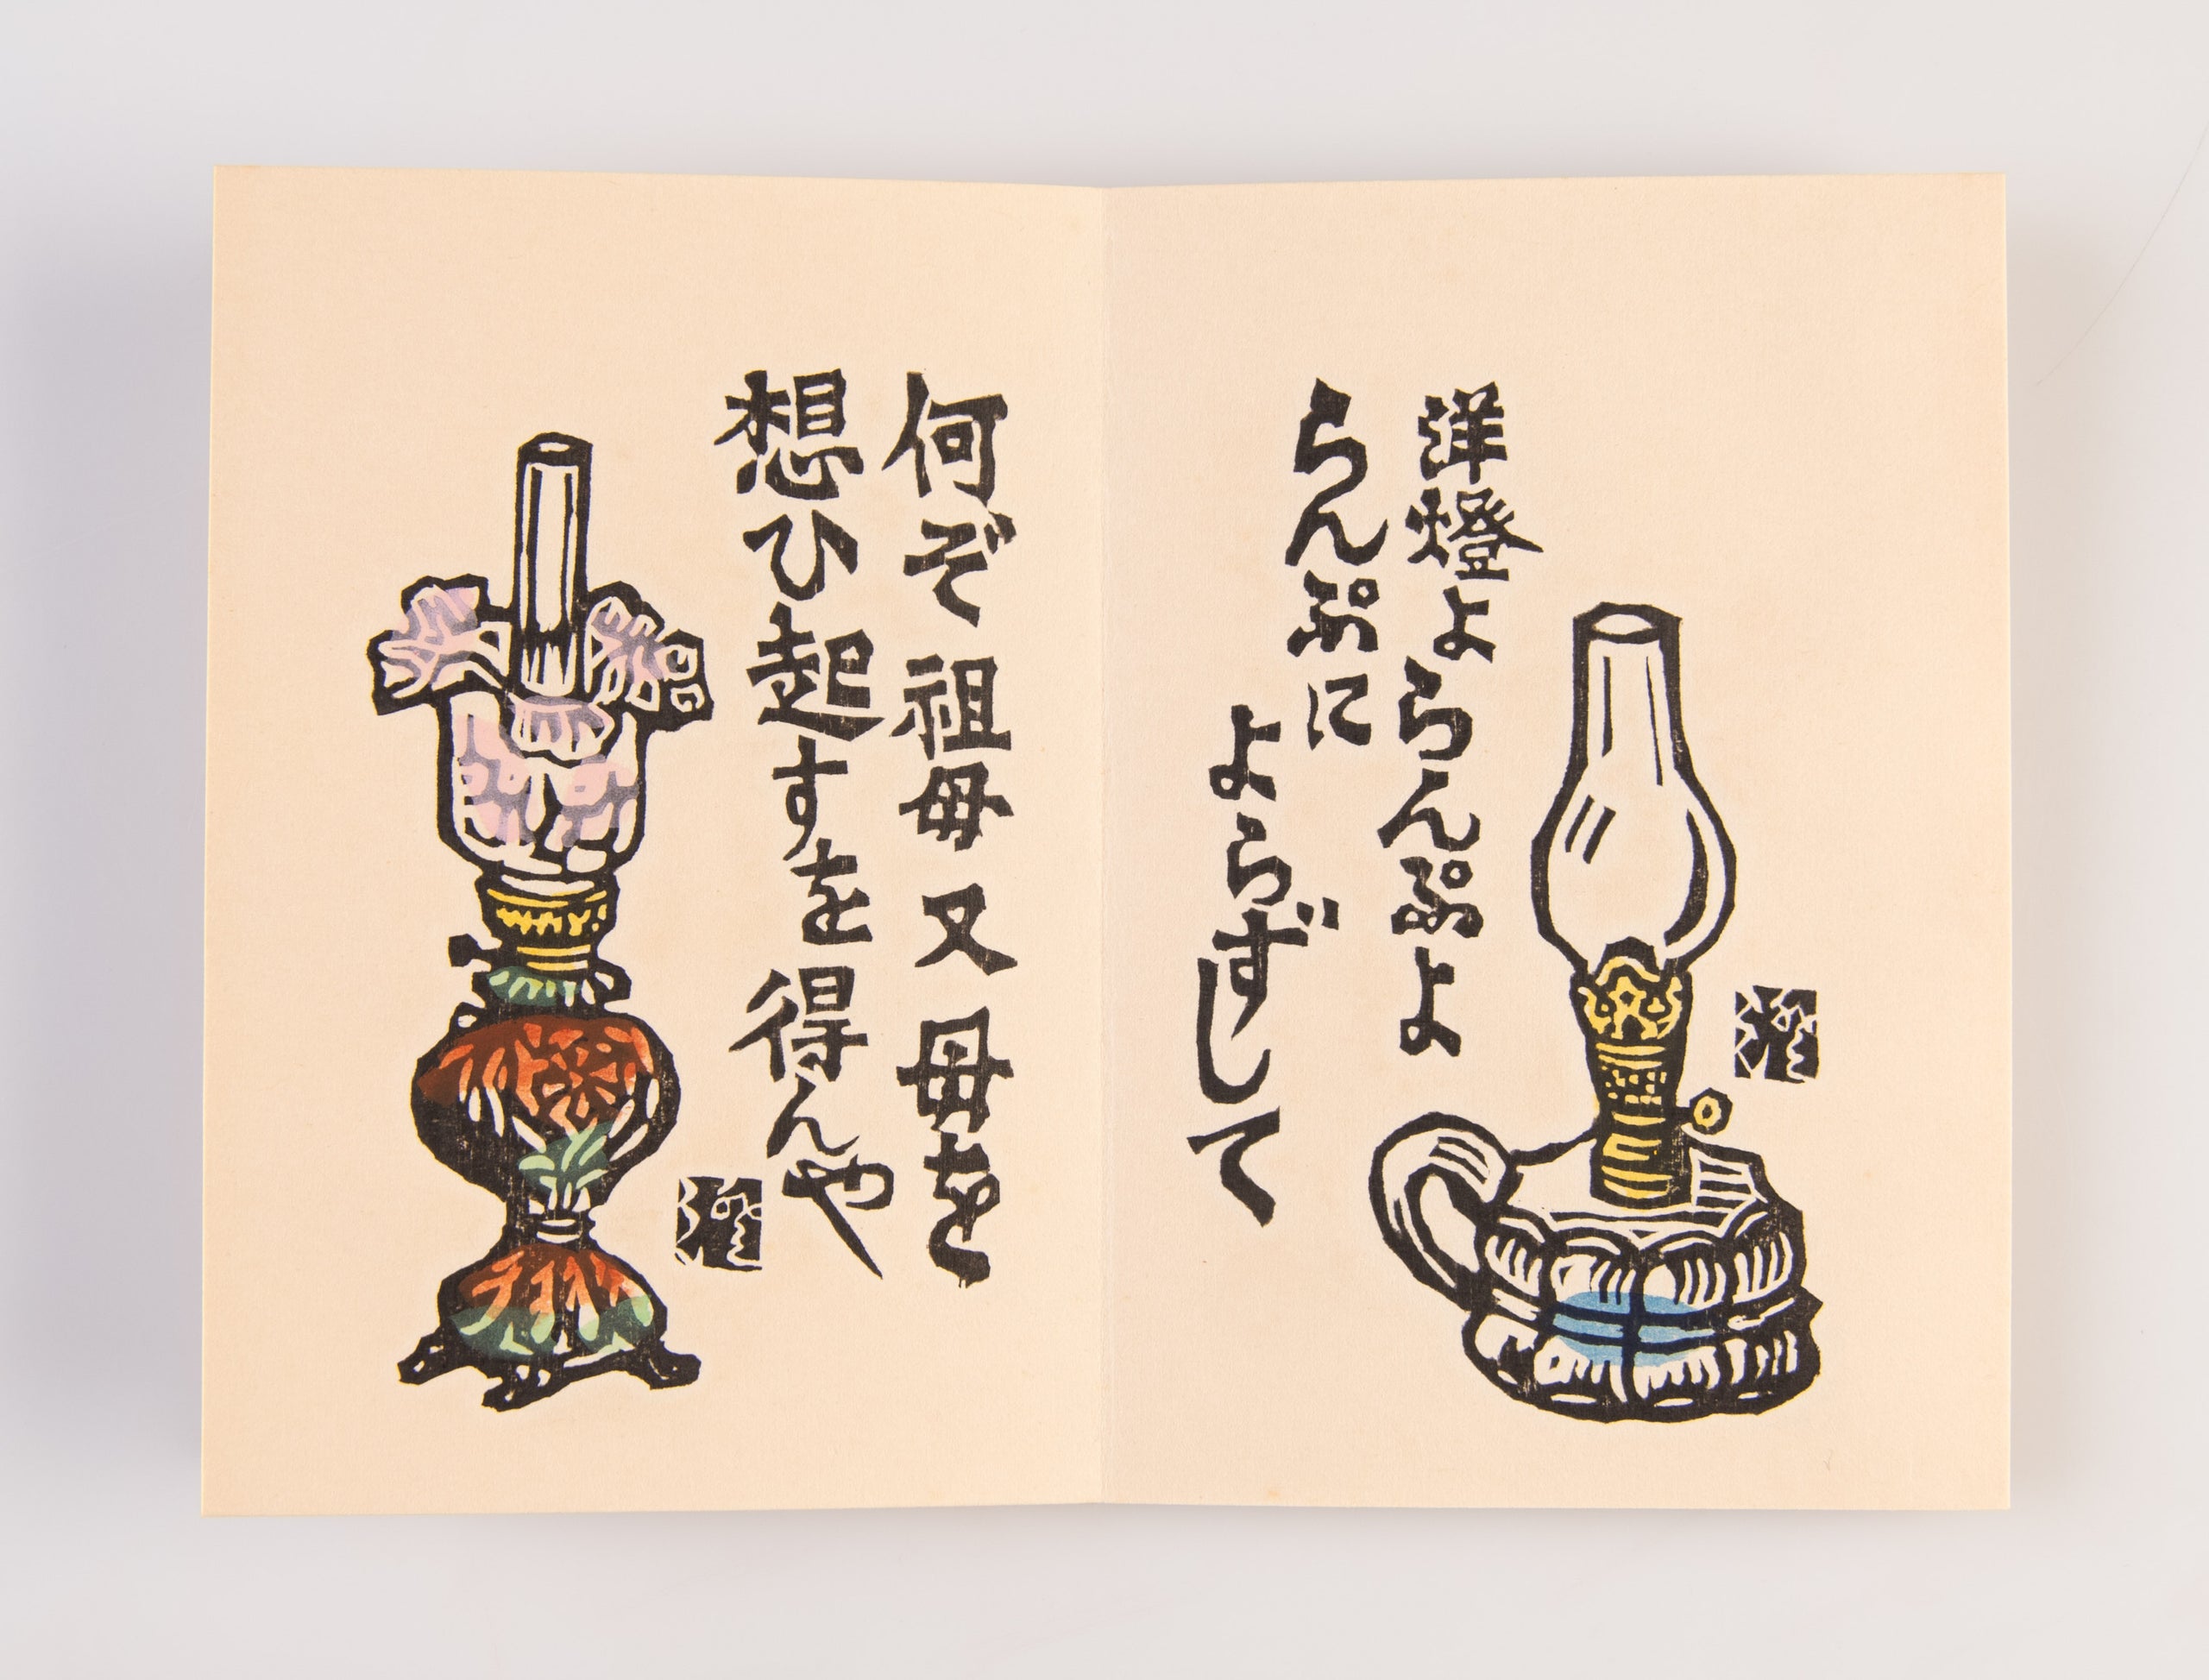 洋燈よらんぷよ
らんぷに
よらずして
何ぞ祖母又母を
想ひ起すを得んや